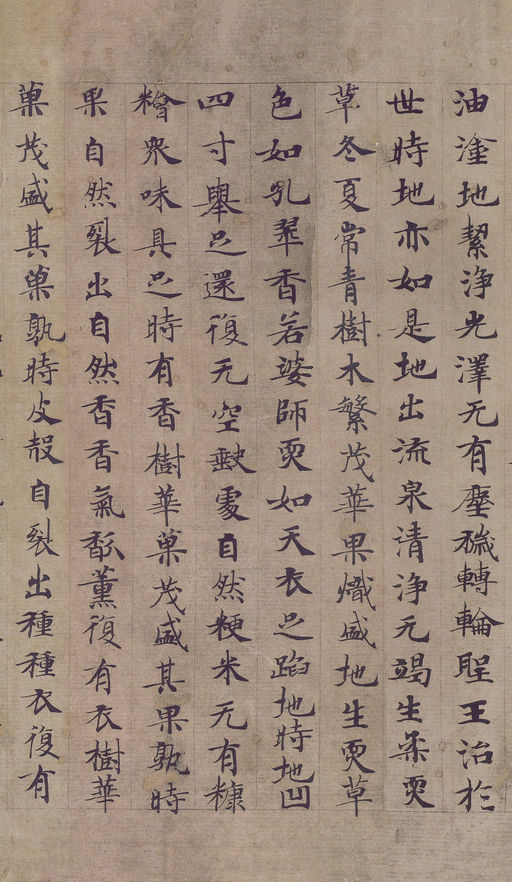 油塗地絜淨光澤无有塵穢轉輪聖王治於
世時地亦如是地出流泉清淨无竭生柔耎
草冬夏常青樹木繁茂華果熾盛地生耎草
色如孔翠香若婆師耎如天衣足蹈地時地凹
四寸舉足還復无空缺處自然粳米无有糠
糩衆味具足時有香樹華菓茂盛其果孰時
果自然裂出自然香香氣馝薰復有衣樹華
菓茂盛其菓孰時皮殼自裂出種種衣復有